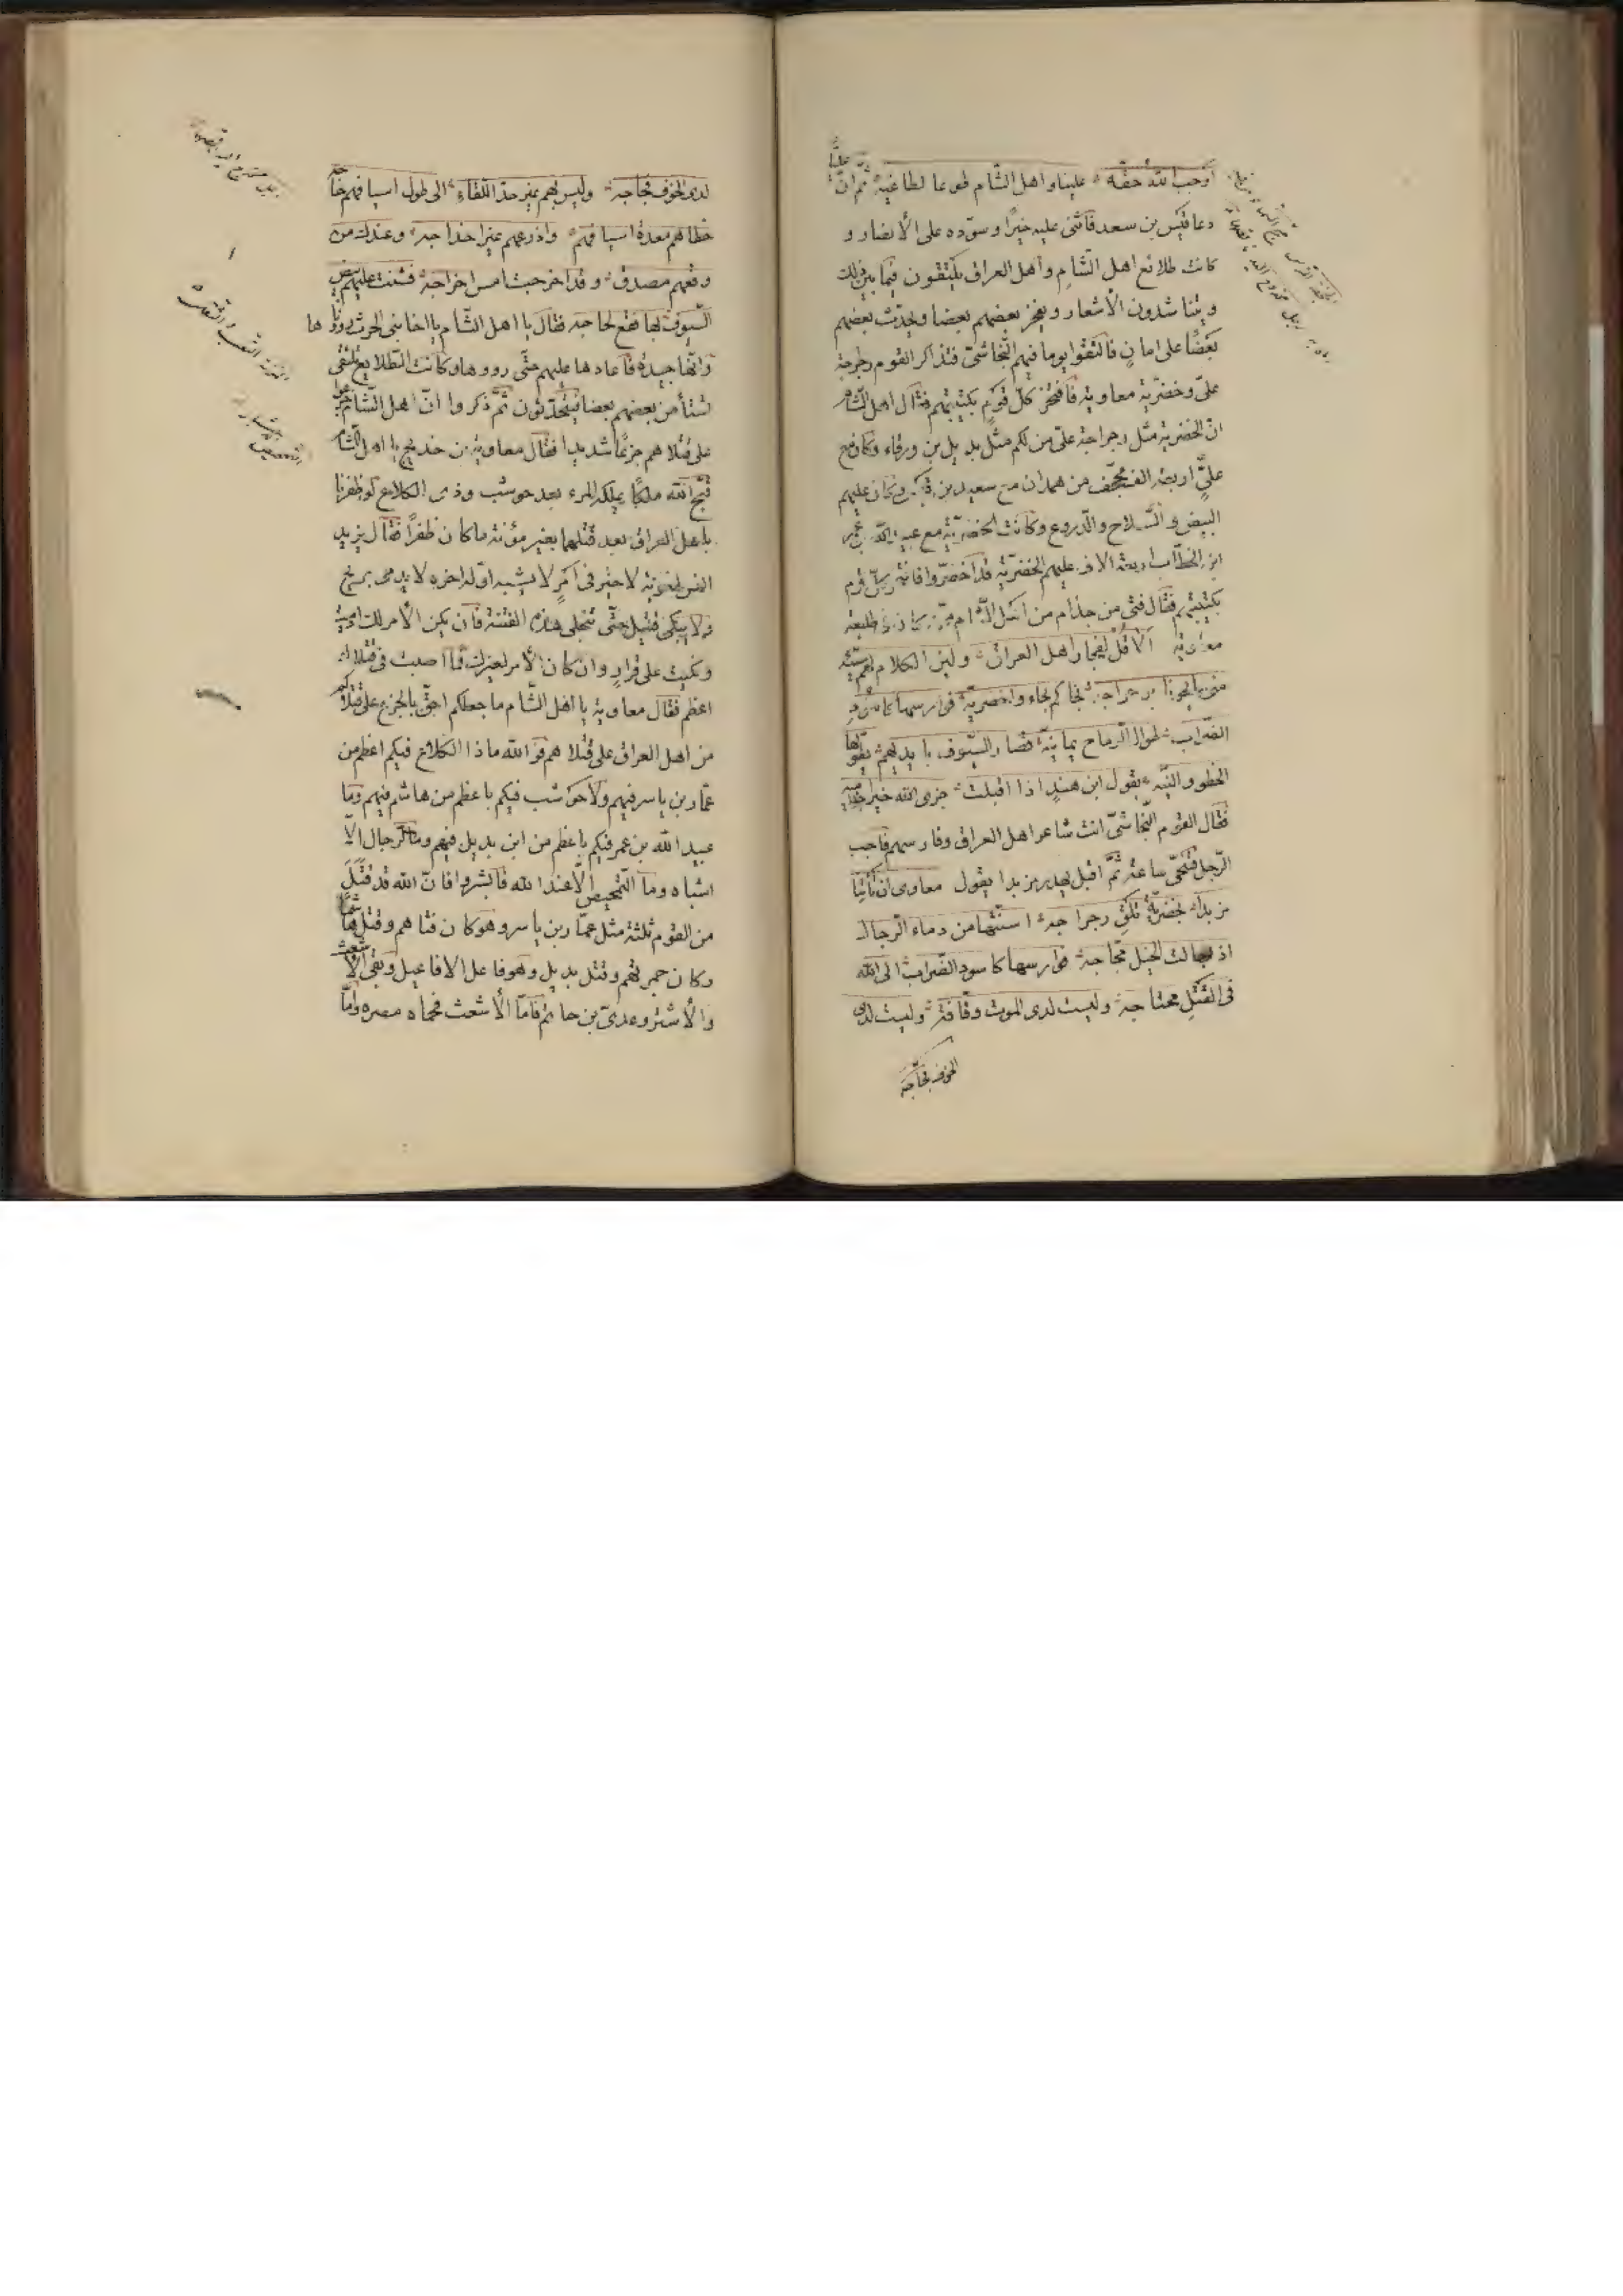 أوجب الله حقه علينا واهل الشام طوعا لطاغية ثم ان عليا
دعا قيس بن سعد فاثنى عليه خيرا وسوده على الأنصار و
كانت طلائع اهل الشام واهل العراق يلتقون فيما بين ذلك
ويتناشدون الأشعار ويفخر بعضهم بعضا ويحدث بعضهم
بعضا على امان فالتقوا يوما فيهم النجاشى فتذاكر القوم رجراجة
على وخضرية معاوية فافتخر كل قوم بكتيبتهم فقال اهل الشام
ان الخضرية مثل رجراجة على من لكم مثل بديل بن ورقاء وكان مع
على اربعة الف مجفف من همدان مع سعيد بن قيس وكان عليهم
البيض والسلاح والدروع وكانت الخضرية مع عبيد الله بن عمر
ابن الخطاب اربعة الاف عليهم الخضرية
فقال فتى من جذام من اهل الشام
معاوية الا قل لفجار اهل العراق ولين الكلام لهم سيئه
متى رجراجة نجاكم بجاء وا خضرية فوارسها كاسود
الضراب طوال الرماح يمانية قصار السيوف بايديهم يطولها
الخطو والنية يقول ابن هند اذا اقبلت جزى الله خيرا
فقال القوم النجاشى انت شاعر اهل العراق وفارسهم فاجب
الرجل فتنحى ساعة ثم اقبل يهدر مزبدا يقول معاوى ان تأتنا
مزبدا بخضرية تلق رجراجة اسنتها من دماء الرجال
اذ جالت الخيل مجاجة فوارسها كاسود الضراب الى الله
فى القتل محتاجة وليست لدى الموت وقافة وليست لدى
الخوف فجاجة
لدى الخوف فجاجة وليس بهم غير حد اللقاء الى طول اسيافهم حاجة
خطاهم معدة اسيافهم واذرعهم غير اخداجة وعندك من
وقعهم مصدق وقد اخرجت امس اخراجة فشنت عليهم بيض
السيوف بها فقع لجاجة فقال يا اهل الشام يا اخا بنى الحرث روونا ها
فانها جيدة فاعادها عليهم حتى رووها وكانت الطلايع تلتقى
تستأمن بعضهم بعضا فيتحدثون ثم ذكروا ان اهل الشام جزعوا
على قتلاهم جزعا شديدا فقال معاوية بن خديج يا اهل الشام
قبح الله ملكا يملكه المرء بعد حوشب وذى الكلاع لو ظفرنا
باهل العراق بعد قتلهما بغير مؤنة ما كان ظفرا فقال يزيد
لمعاوية لا خير فى امر لا يشبه اوله اخره لا يدمى جريح
ولا يبكى قتيل حتى تنجلى هذه الفتنة فان يكن الأمر لك ادميت
وبكيت على قرار وان كان الأمر لغيرك فما اصبت فى قتلاك
اعظم فقال معاوية يا اهل الشام ما جعلكم احق بالجزع على قتلاكم
من اهل العراق على قتلاهم فو الله ما ذا الكلاع فيكم اعظم من
عمار بن ياسر فيهم ولا حوشب فيكم باعظم من هاشم فيهم وما
عبيد الله بن عمر فيكم باعظم من ابن بديل فيهم وما الرجال الا
اشباه وما التمحيص الا عند الله فابشروا فان الله قد قتل
من القوم ثلثة مثل عمار بن ياسر وهو كان فتاهم وقتل هاشما
وكان جمرتهم وقتل بديل وهو فاعل الافاعيل وبقى الأشعث
والأشتر وعدى بن حاتم فاما الأشعث فحماه مصره واما